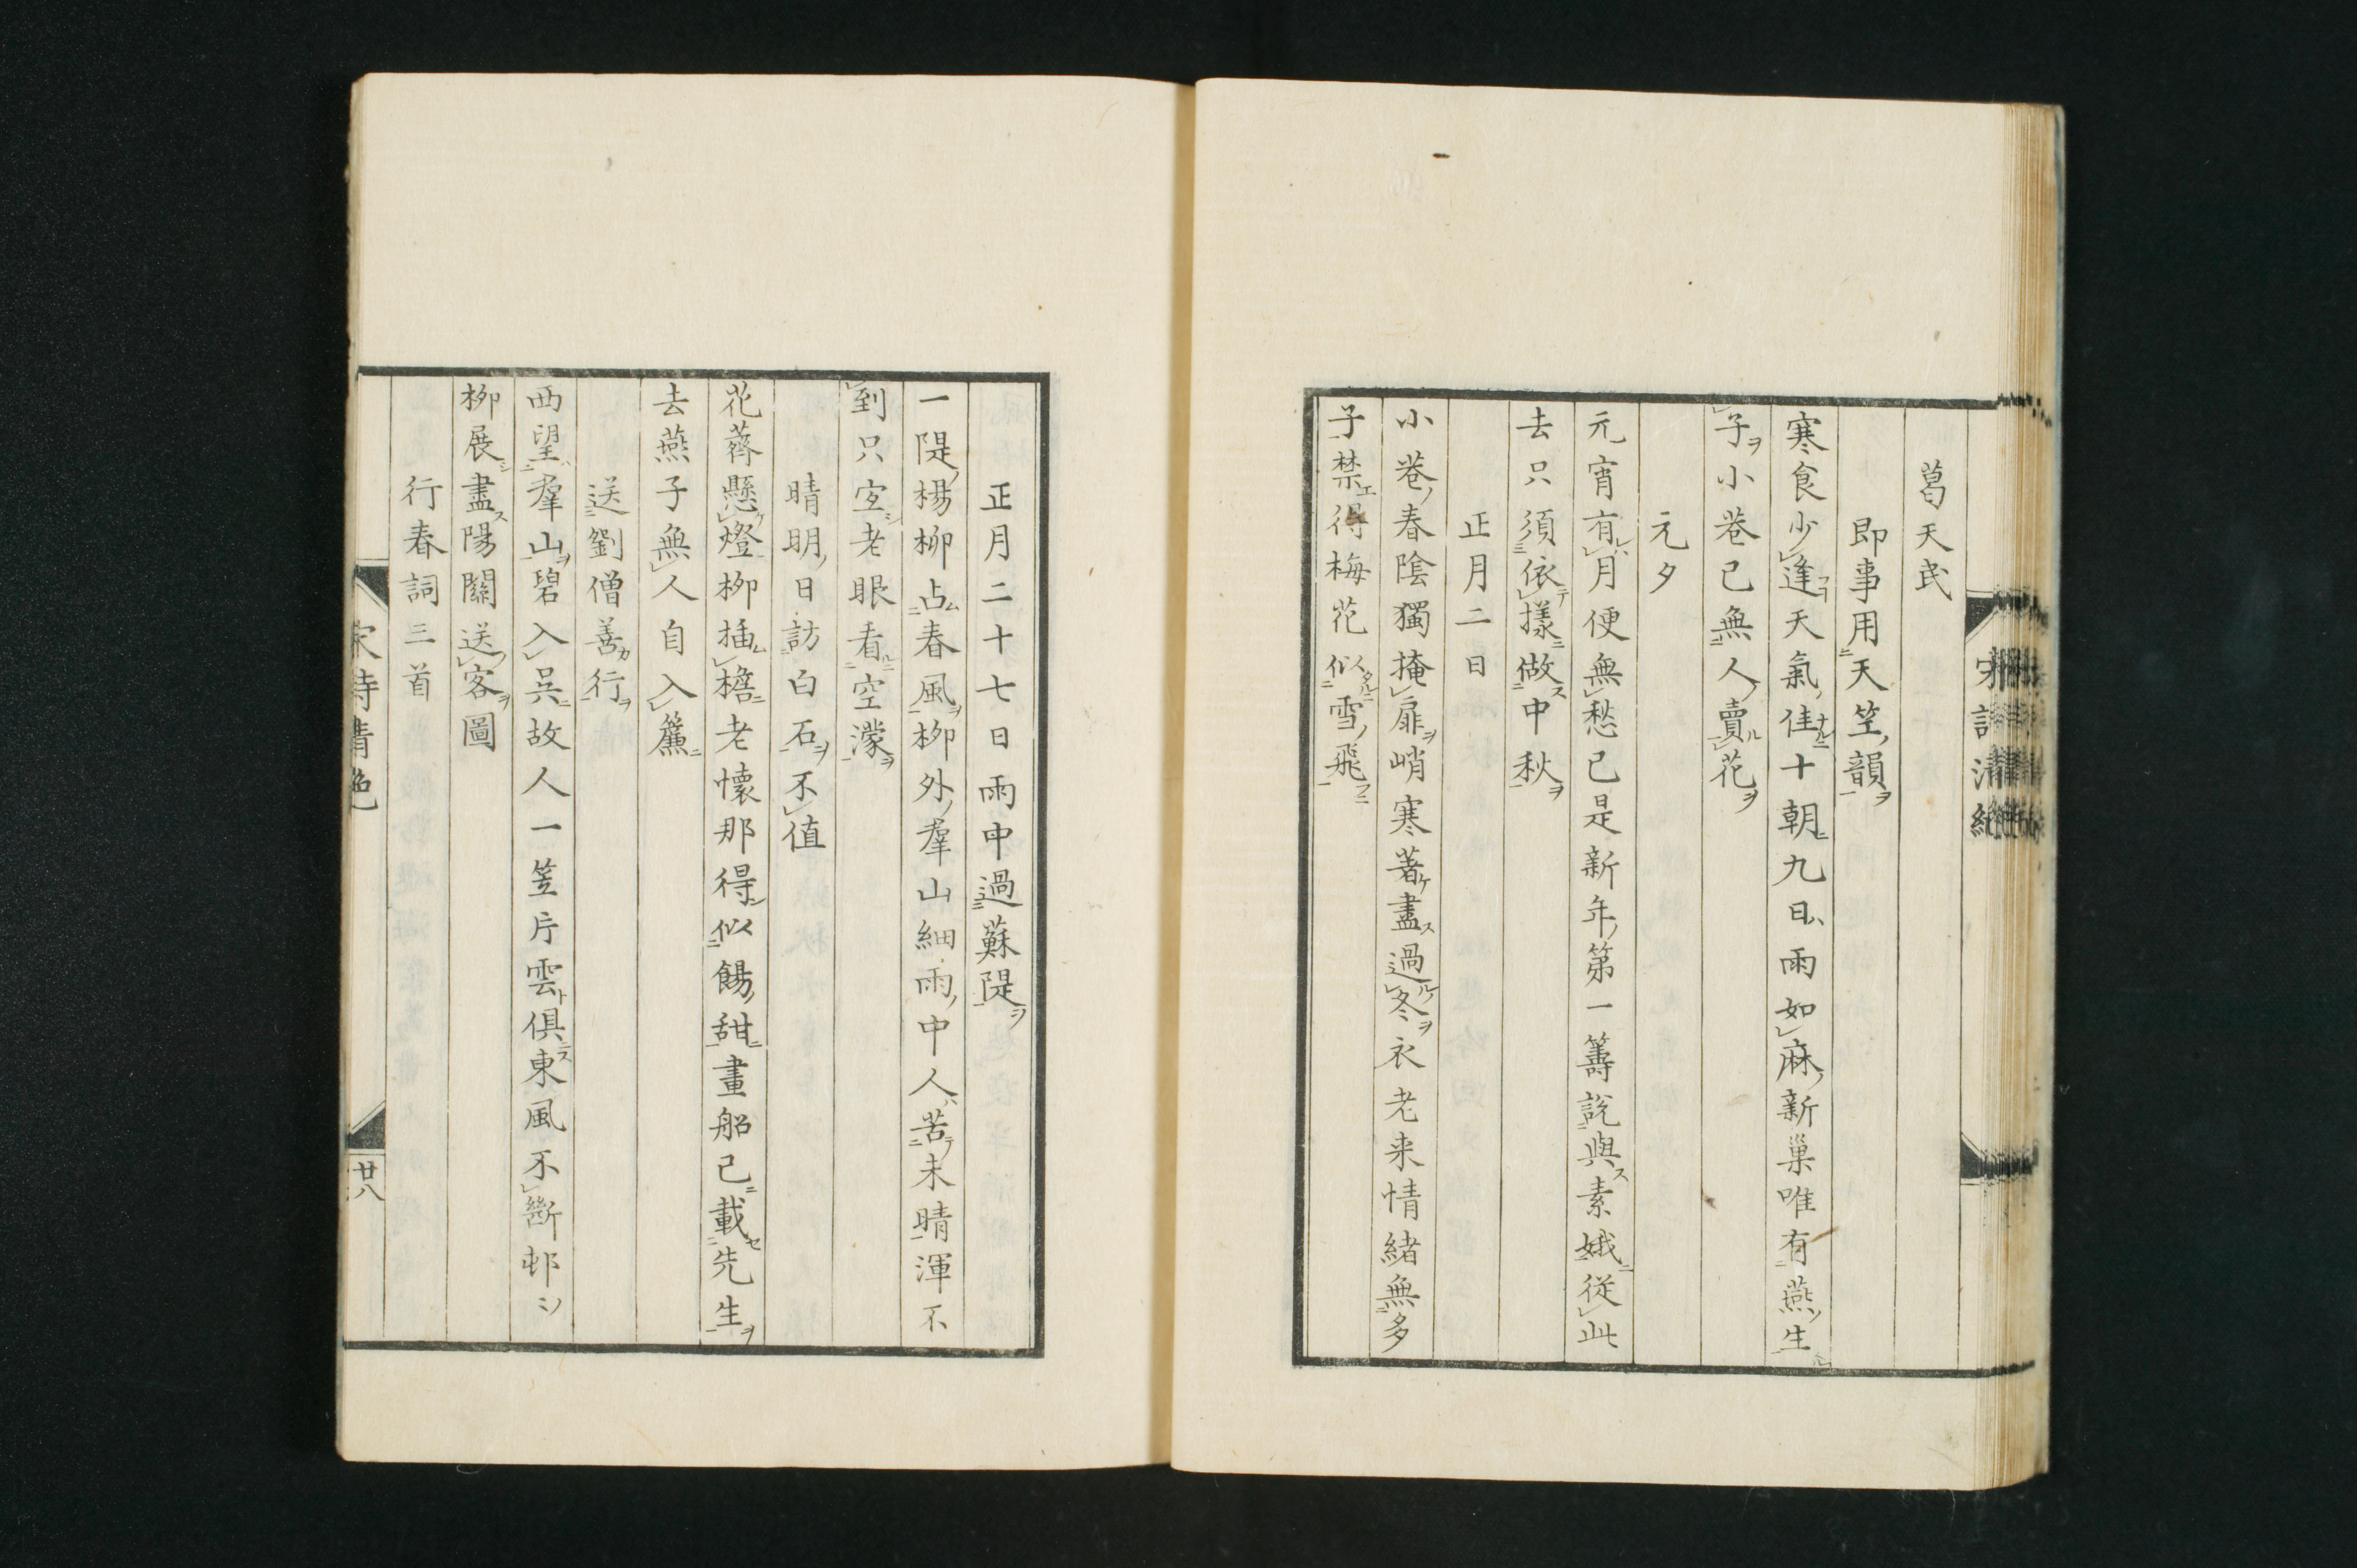 葛天民
即事用天竺韻
寒食少逢天氣佳十朝九日雨如麻新巢唯有燕生
子小巷已無人賣花
元夕
元宵有月便無愁已是新年第一籌說與素娥從此
去只須依樣做中秋
正月二日
小巷春陰獨掩扉峭寒著盡過冬衣老来情緒無多
子禁得梅花似雪飛
正月二十七日雨中過蘇隄
一隄楊柳占春風柳外羣山細雨中人苦未晴渾不
到只宜老眼看空濛
晴明日訪白石不值
花薺懸燈柳插檐老懷那得似餳甜畫船已載先生
去燕子無人自入簾
送劉僧善行
西望羣山碧入吳故人一笠片雲俱東風不斷邨〻
柳展盡陽關送客圖
行春詞三首
宋詩清絶
廿八